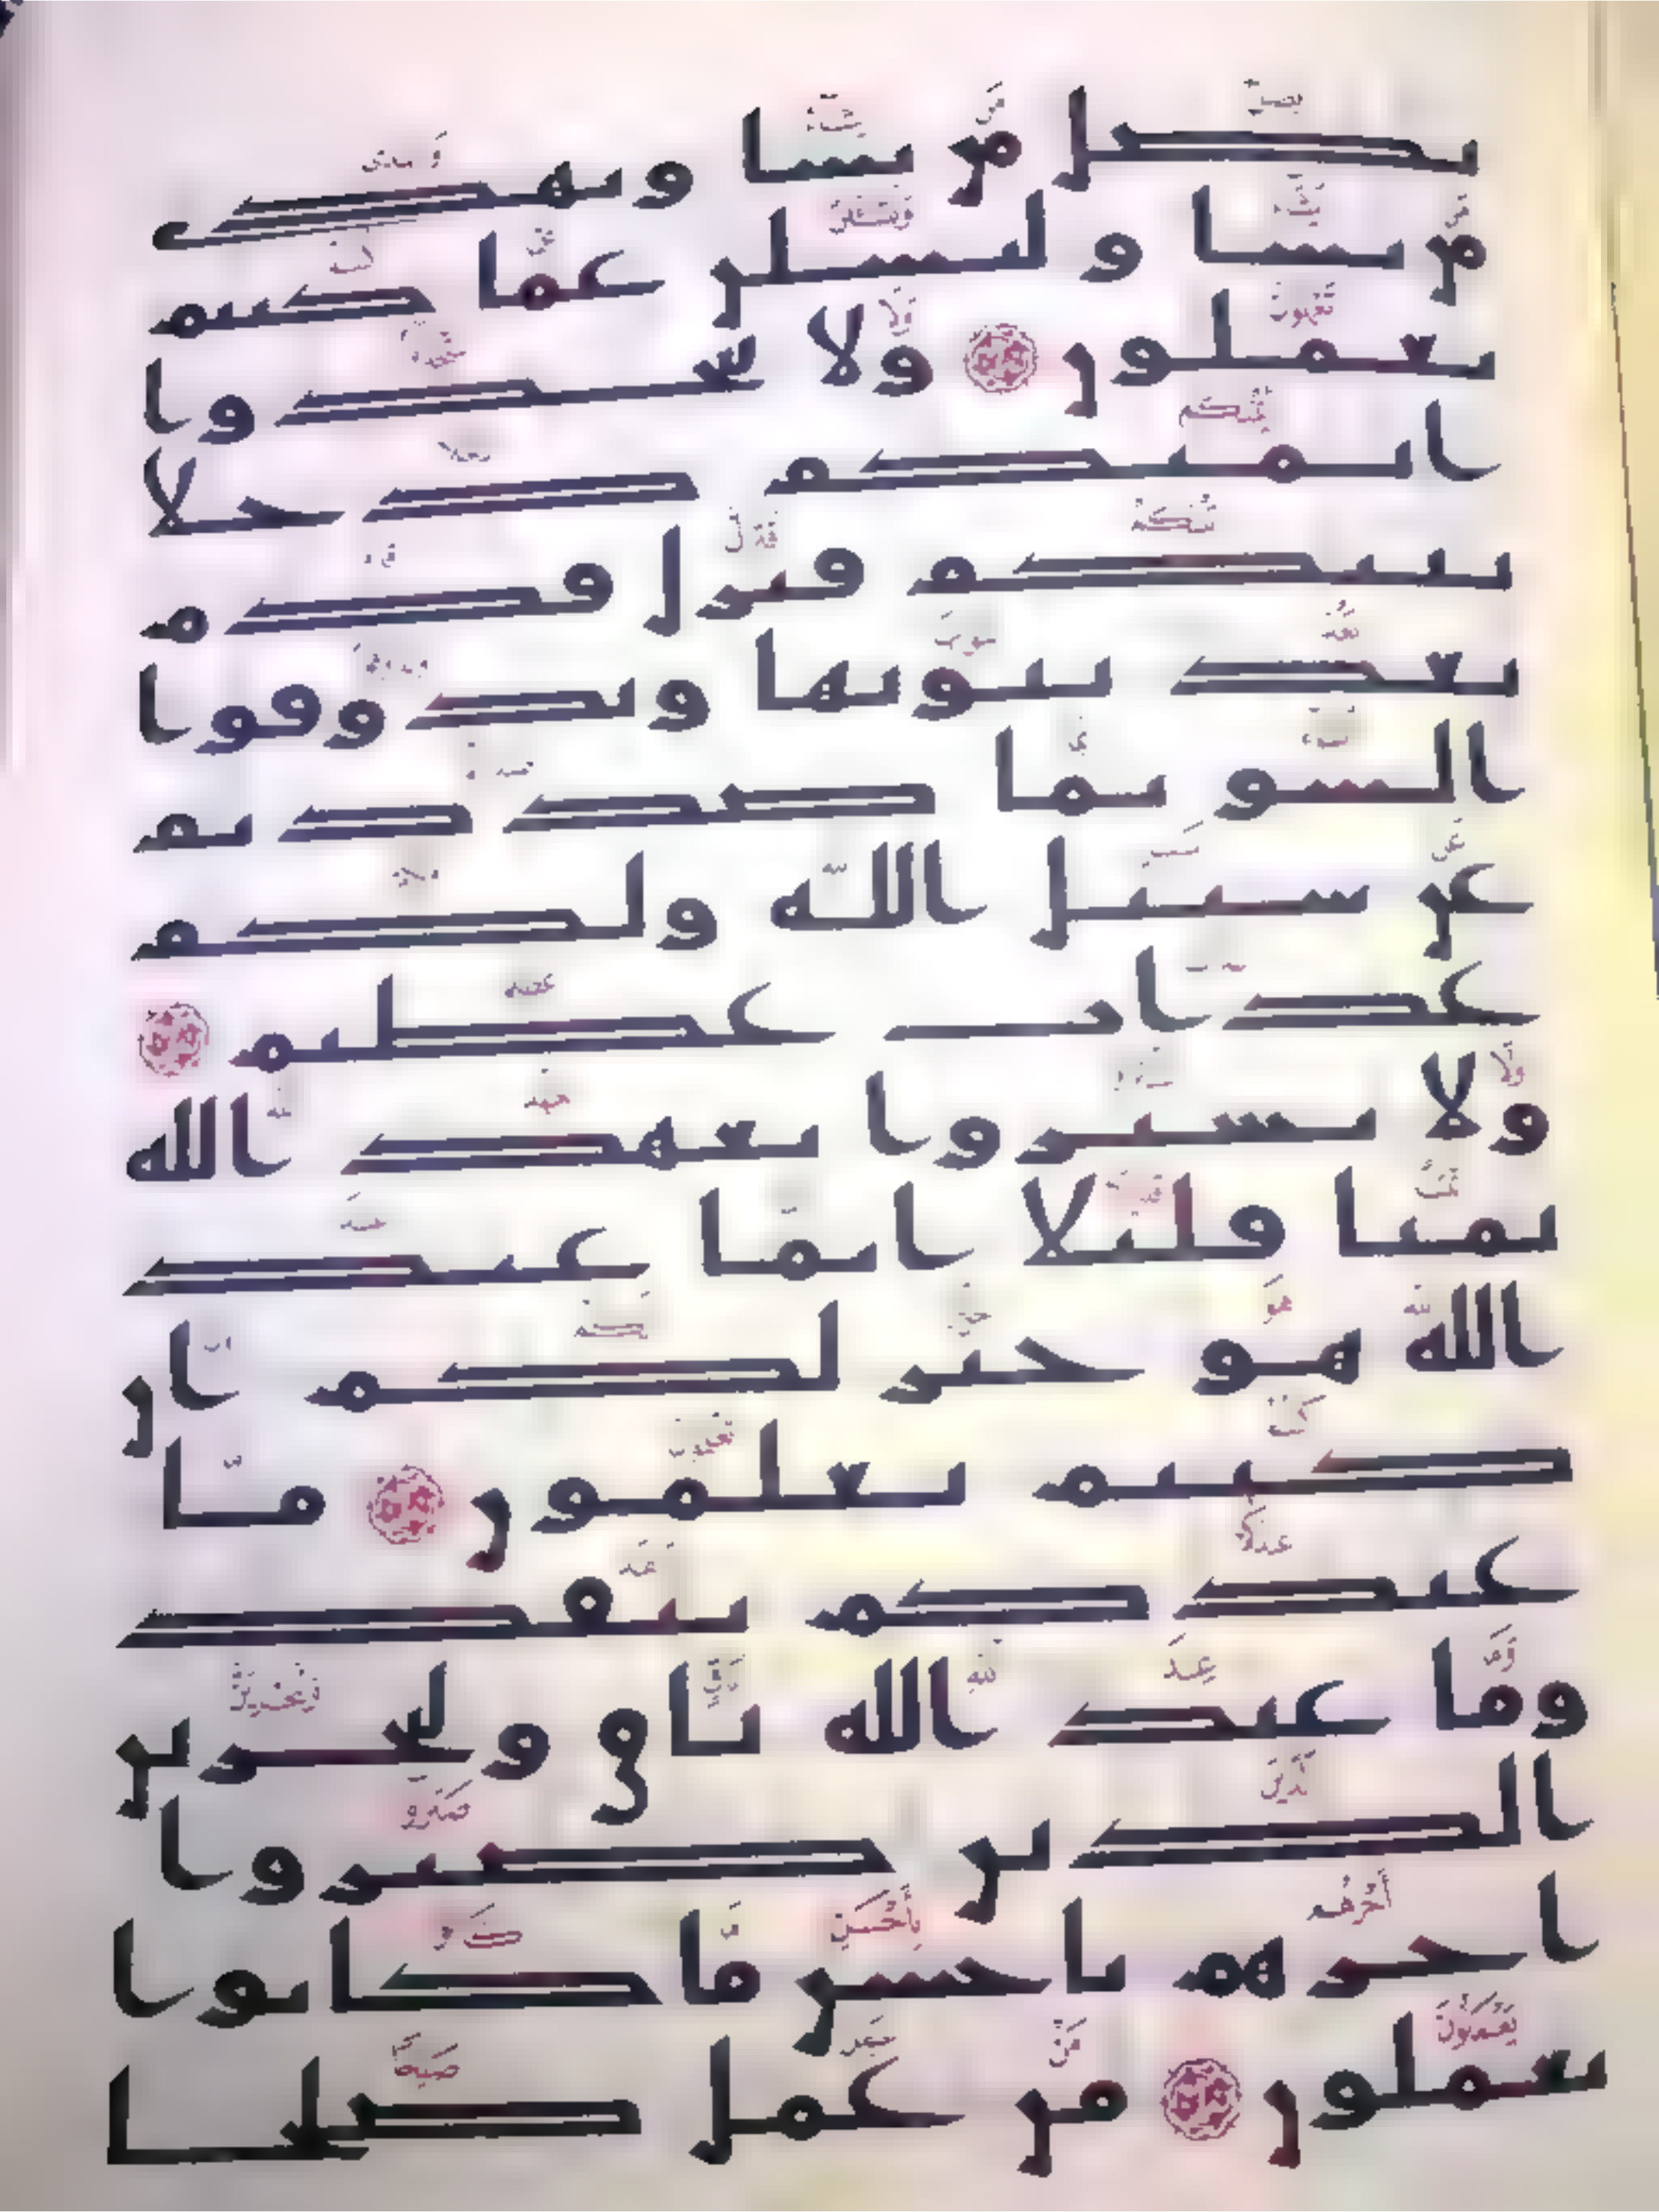 يضل من يشا ويهدي
من يشا ولتسلن عما كنتم
تعملون ولا تتخذوا
ايمنكم دخلا
بينكم فتزل قدم
بعد ثبوتها وتذوقوا
السو بما صددتم
عن سبيل الله ولكم
عذاب عظيم
ولا تشتروا بعهد الله
ثمنا قليلا انما عند
الله هو خير لكم ان
كنتم تعلمون ما
عندكم ينفد
وما عند الله باق ولنجزين
الذين صبروا
اجرهم باحسن ما كانوا
يعملون من عمل صلحا